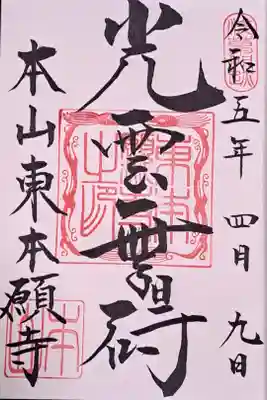 令和五年 四月 九日
光雲無碍
本山東本願寺